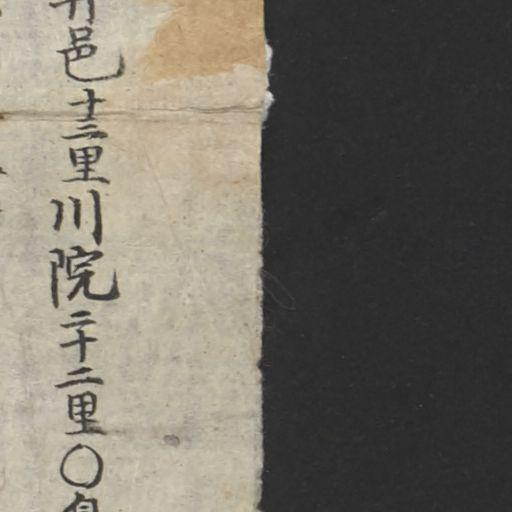 邑十二里川院二十二里〇